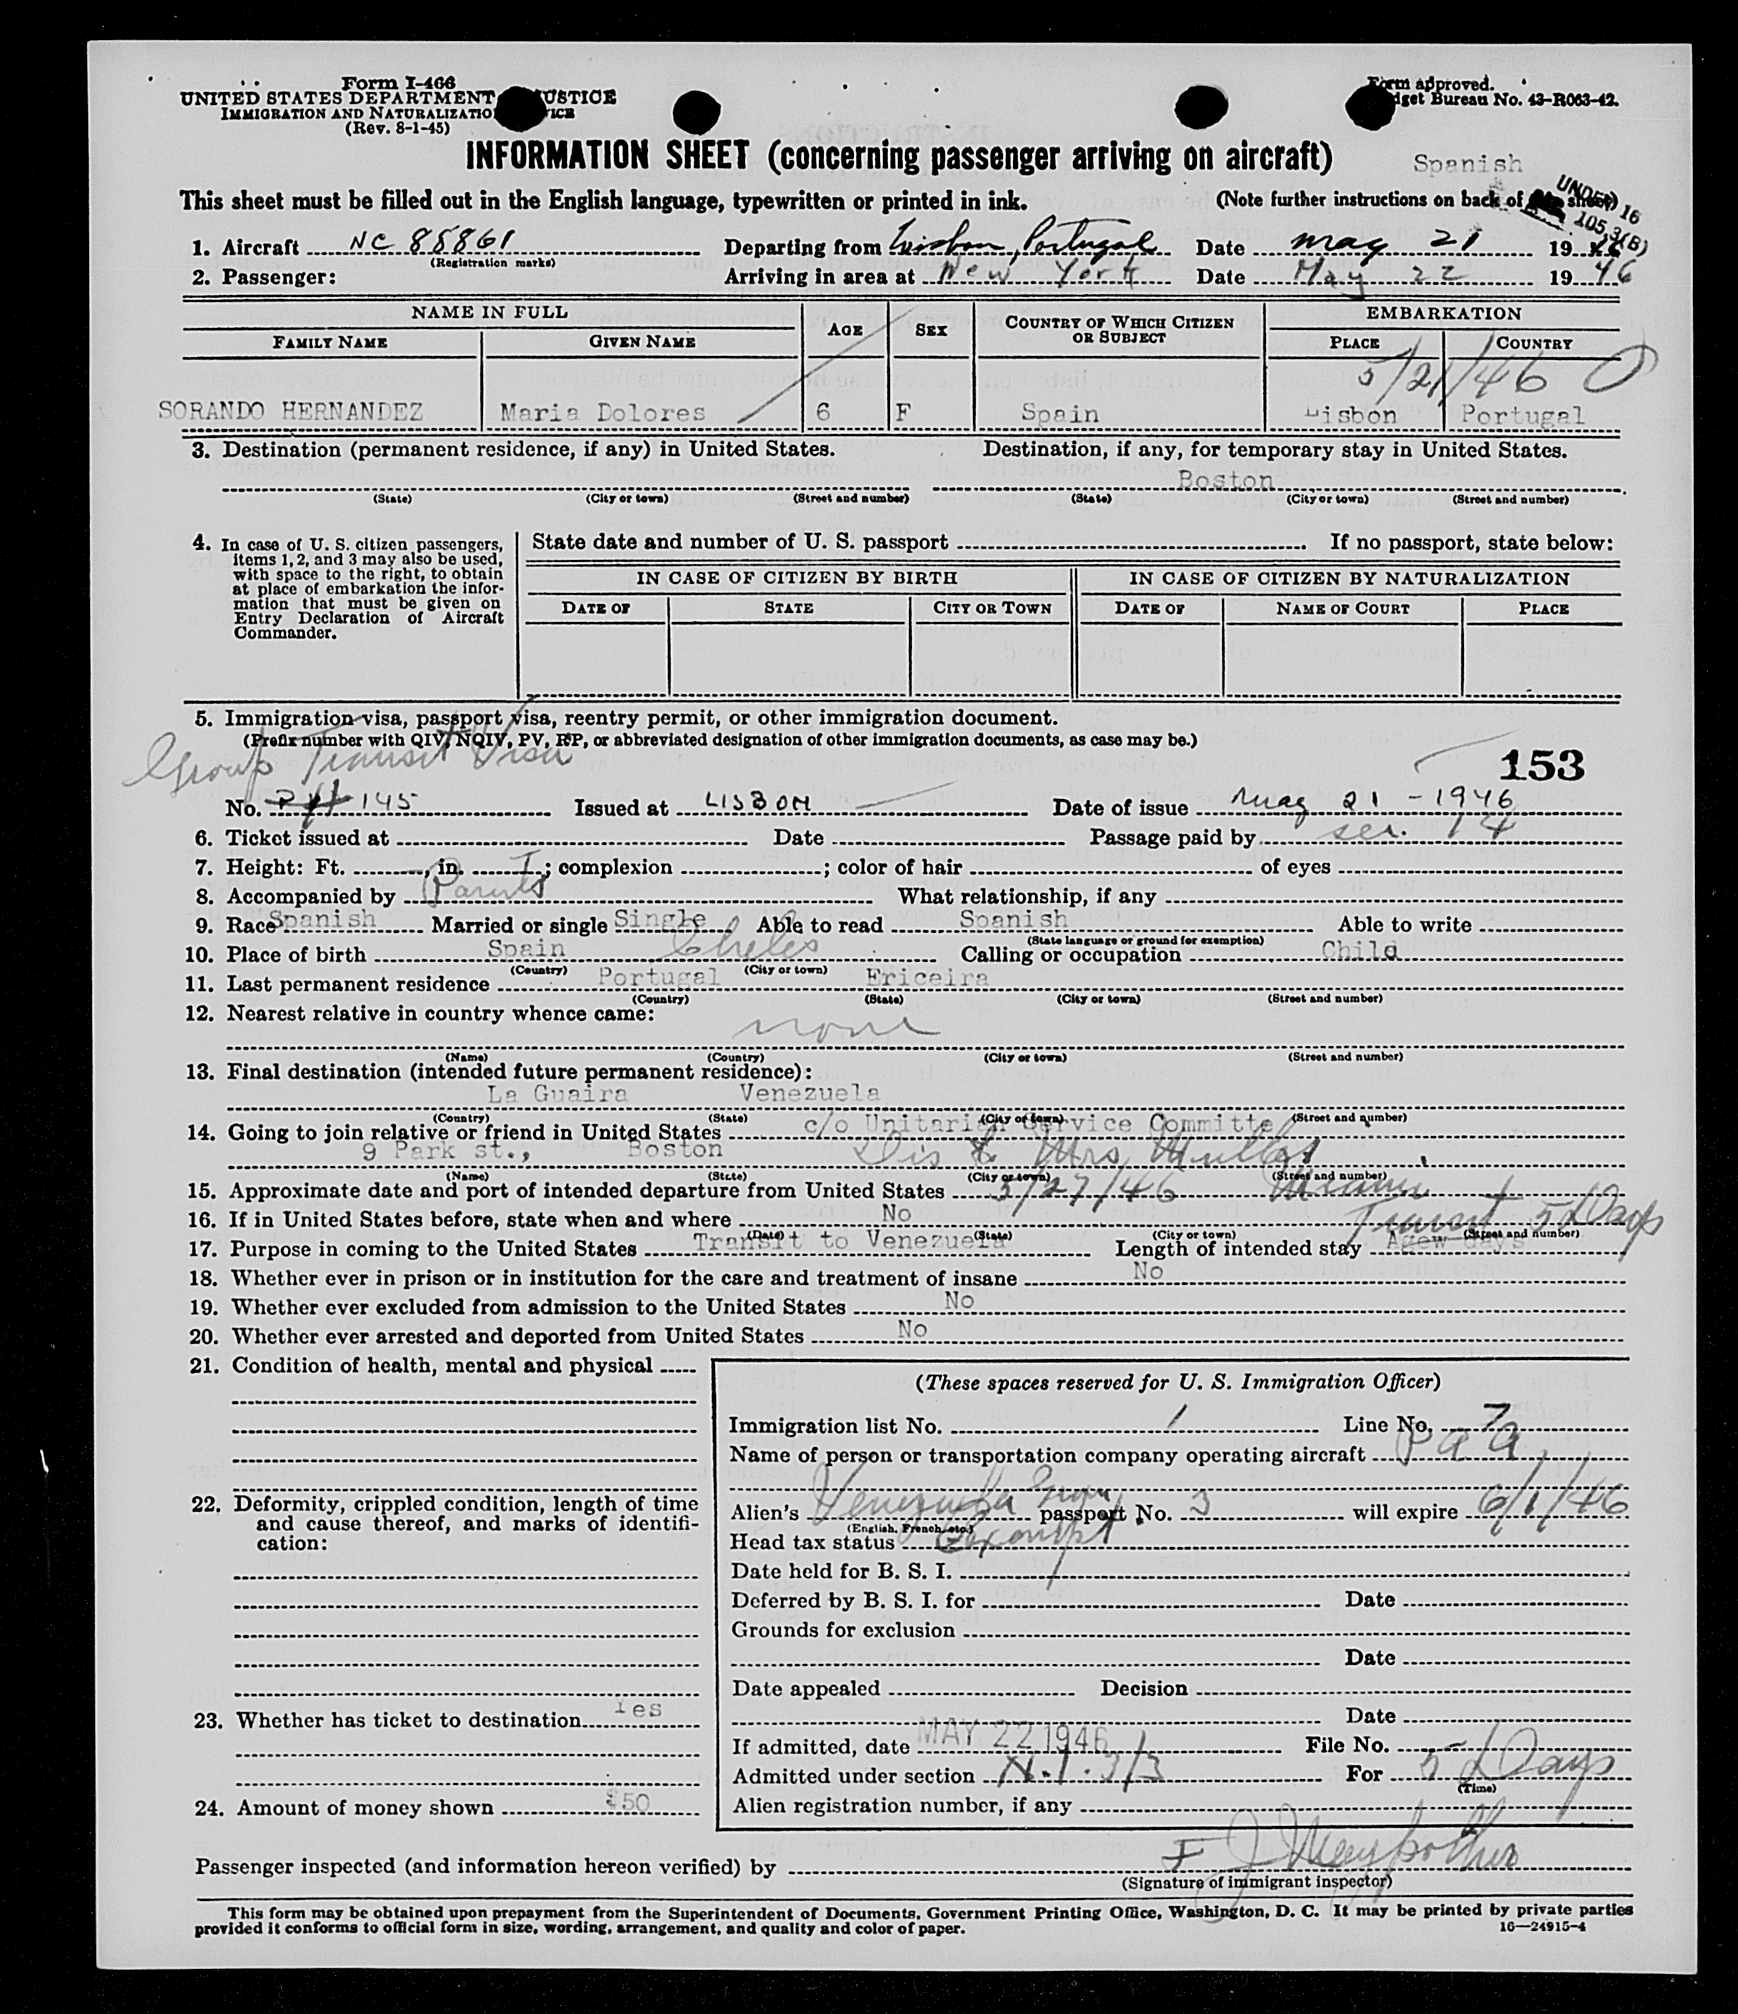 Form I-466
UNITED STATES DEPARTMENT USTICE
IMMIGRATION AND NATURALIZATIO ICE
(Rev. 8-1-45)
Form approved.
dget Bureau No. 43-R063-42.
INFORMATION SHEET (concerning passenger arriving on aircraft)
Spanish
This sheet must be filled out in the English language, typewritten or printed in ink.
(Note further instructions on back of sheet)
UNDER 16
105.3(B)
1. Aircraft NC 88861 Departing from Lisbon, Portugal Date May 21 1946
(Registration marks)
2. Passenger: Arriving in area at New York Date May 22 1946
NAME IN FULL AGE SEX COUNTRY OF WHICH CITIZEN OR SUBJECT EMBARKATION
FAMILY NAME GIVEN NAME PLACE COUNTRY
5/21/46
SORANDO HERNANDEZ Maria Dolores 6 F Spain Lisbon Portugal
3. Destination (permanent residence, if any) in United States. Destination, if any, for temporary stay in United States.
Boston
(State) (City or town) (Street and number) (State) (City or town) (Street and number)
4. In case of U. S. citizen passengers,
items 1, 2, and 3 may also be used,
with space to the right, to obtain
at place of embarkation the infor-
mation that must be given on
Entry Declaration of Aircraft
Commander.
State date and number of U. S. passport If no passport, state below:
IN CASE OF CITIZEN BY BIRTH IN CASE OF CITIZEN BY NATURALIZATION
DATE OF STATE CITY OR TOWN DATE OF NAME OF COURT PLACE
5. Immigration visa, passport visa, reentry permit, or other immigration document.
(Prefix number with QIV, NQIV, PV, RP, or abbreviated designation of other immigration documents, as case may be.)
Group Transit Visa
153
No. 145 Issued at LISBON Date of issue May 21 - 1946
6. Ticket issued at Date Passage paid by sec. 14
7. Height: Ft. , in. ; complexion ; color of hair of eyes
8. Accompanied by Parents What relationship, if any
9. Race Spanish Married or single Single Able to read Spanish Able to write
(State language or ground for exemption)
10. Place of birth Spain Calling or occupation Child
(Country) (City or town)
11. Last permanent residence Portugal Ericeira
(Country) (State) (City or town) (Street and number)
12. Nearest relative in country whence came:
none
(Name) (Country) (City or town) (Street and number)
13. Final destination (intended future permanent residence):
La Guaira Venezuela
(Country) (State) (City or town) (Street and number)
14. Going to join relative or friend in United States c/o Unitarian Service Committe
9 Park st., Boston Dis & Mrs
(Name) (State) (City or town) (Street and number)
15. Approximate date and port of intended departure from United States 5/27/46 Miami
16. If in United States before, state when and where No
Transit 5 Days
(Date) (State) (City or town) (Street and number)
17. Purpose in coming to the United States Transit to Venezuela Length of intended stay Afew days
18. Whether ever in prison or in institution for the care and treatment of insane No
19. Whether ever excluded from admission to the United States No
20. Whether ever arrested and deported from United States No
21. Condition of health, mental and physical
22. Deformity, crippled condition, length of time
and cause thereof, and marks of identifi-
cation:
23. Whether has ticket to destination Yes
24. Amount of money shown $50
(These spaces reserved for U. S. Immigration Officer)
Immigration list No. 1 Line No. 7
Name of person or transportation company operating aircraft P a a
Alien's Venezuela passport No. 3 will expire 6/1/46
(English, French, etc.)
Head tax status Exempt
Date held for B. S. I.
Deferred by B. S. I. for Date
Grounds for exclusion
Date
Date appealed Decision
Date
If admitted, date MAY 22 1946 File No.
Admitted under section For 5 Days
(Time)
Alien registration number, if any
Passenger inspected (and information hereon verified) by
(Signature of immigrant inspector)
This form may be obtained upon prepayment from the Superintendent of Documents, Government Printing Office, Washington, D. C. It may be printed by private parties
provided it conforms to official form in size, wording, arrangement, and quality and color of paper.
16—24915-4